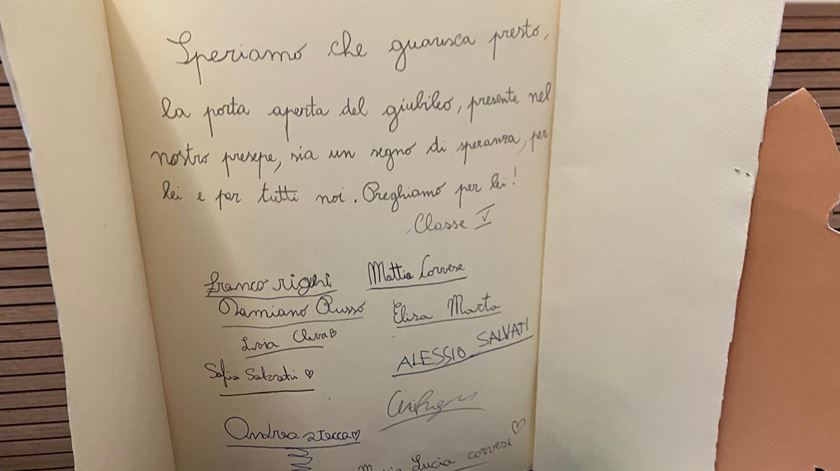 Speriamo che guarisca presto,
la porta aperta del giubileo, presente nel
nostro presepe, sia un segno di speranza, per
lei e per tutti noi. Preghiamo per lei!
Classe V
Franco righi Mattia Corvese
Damiano Russo Elisa Marta
Livia
ALESSIO SALVATI
Sofia Salvati ♡
Andrea stecca ♡
Maria Lucia corvese ♡